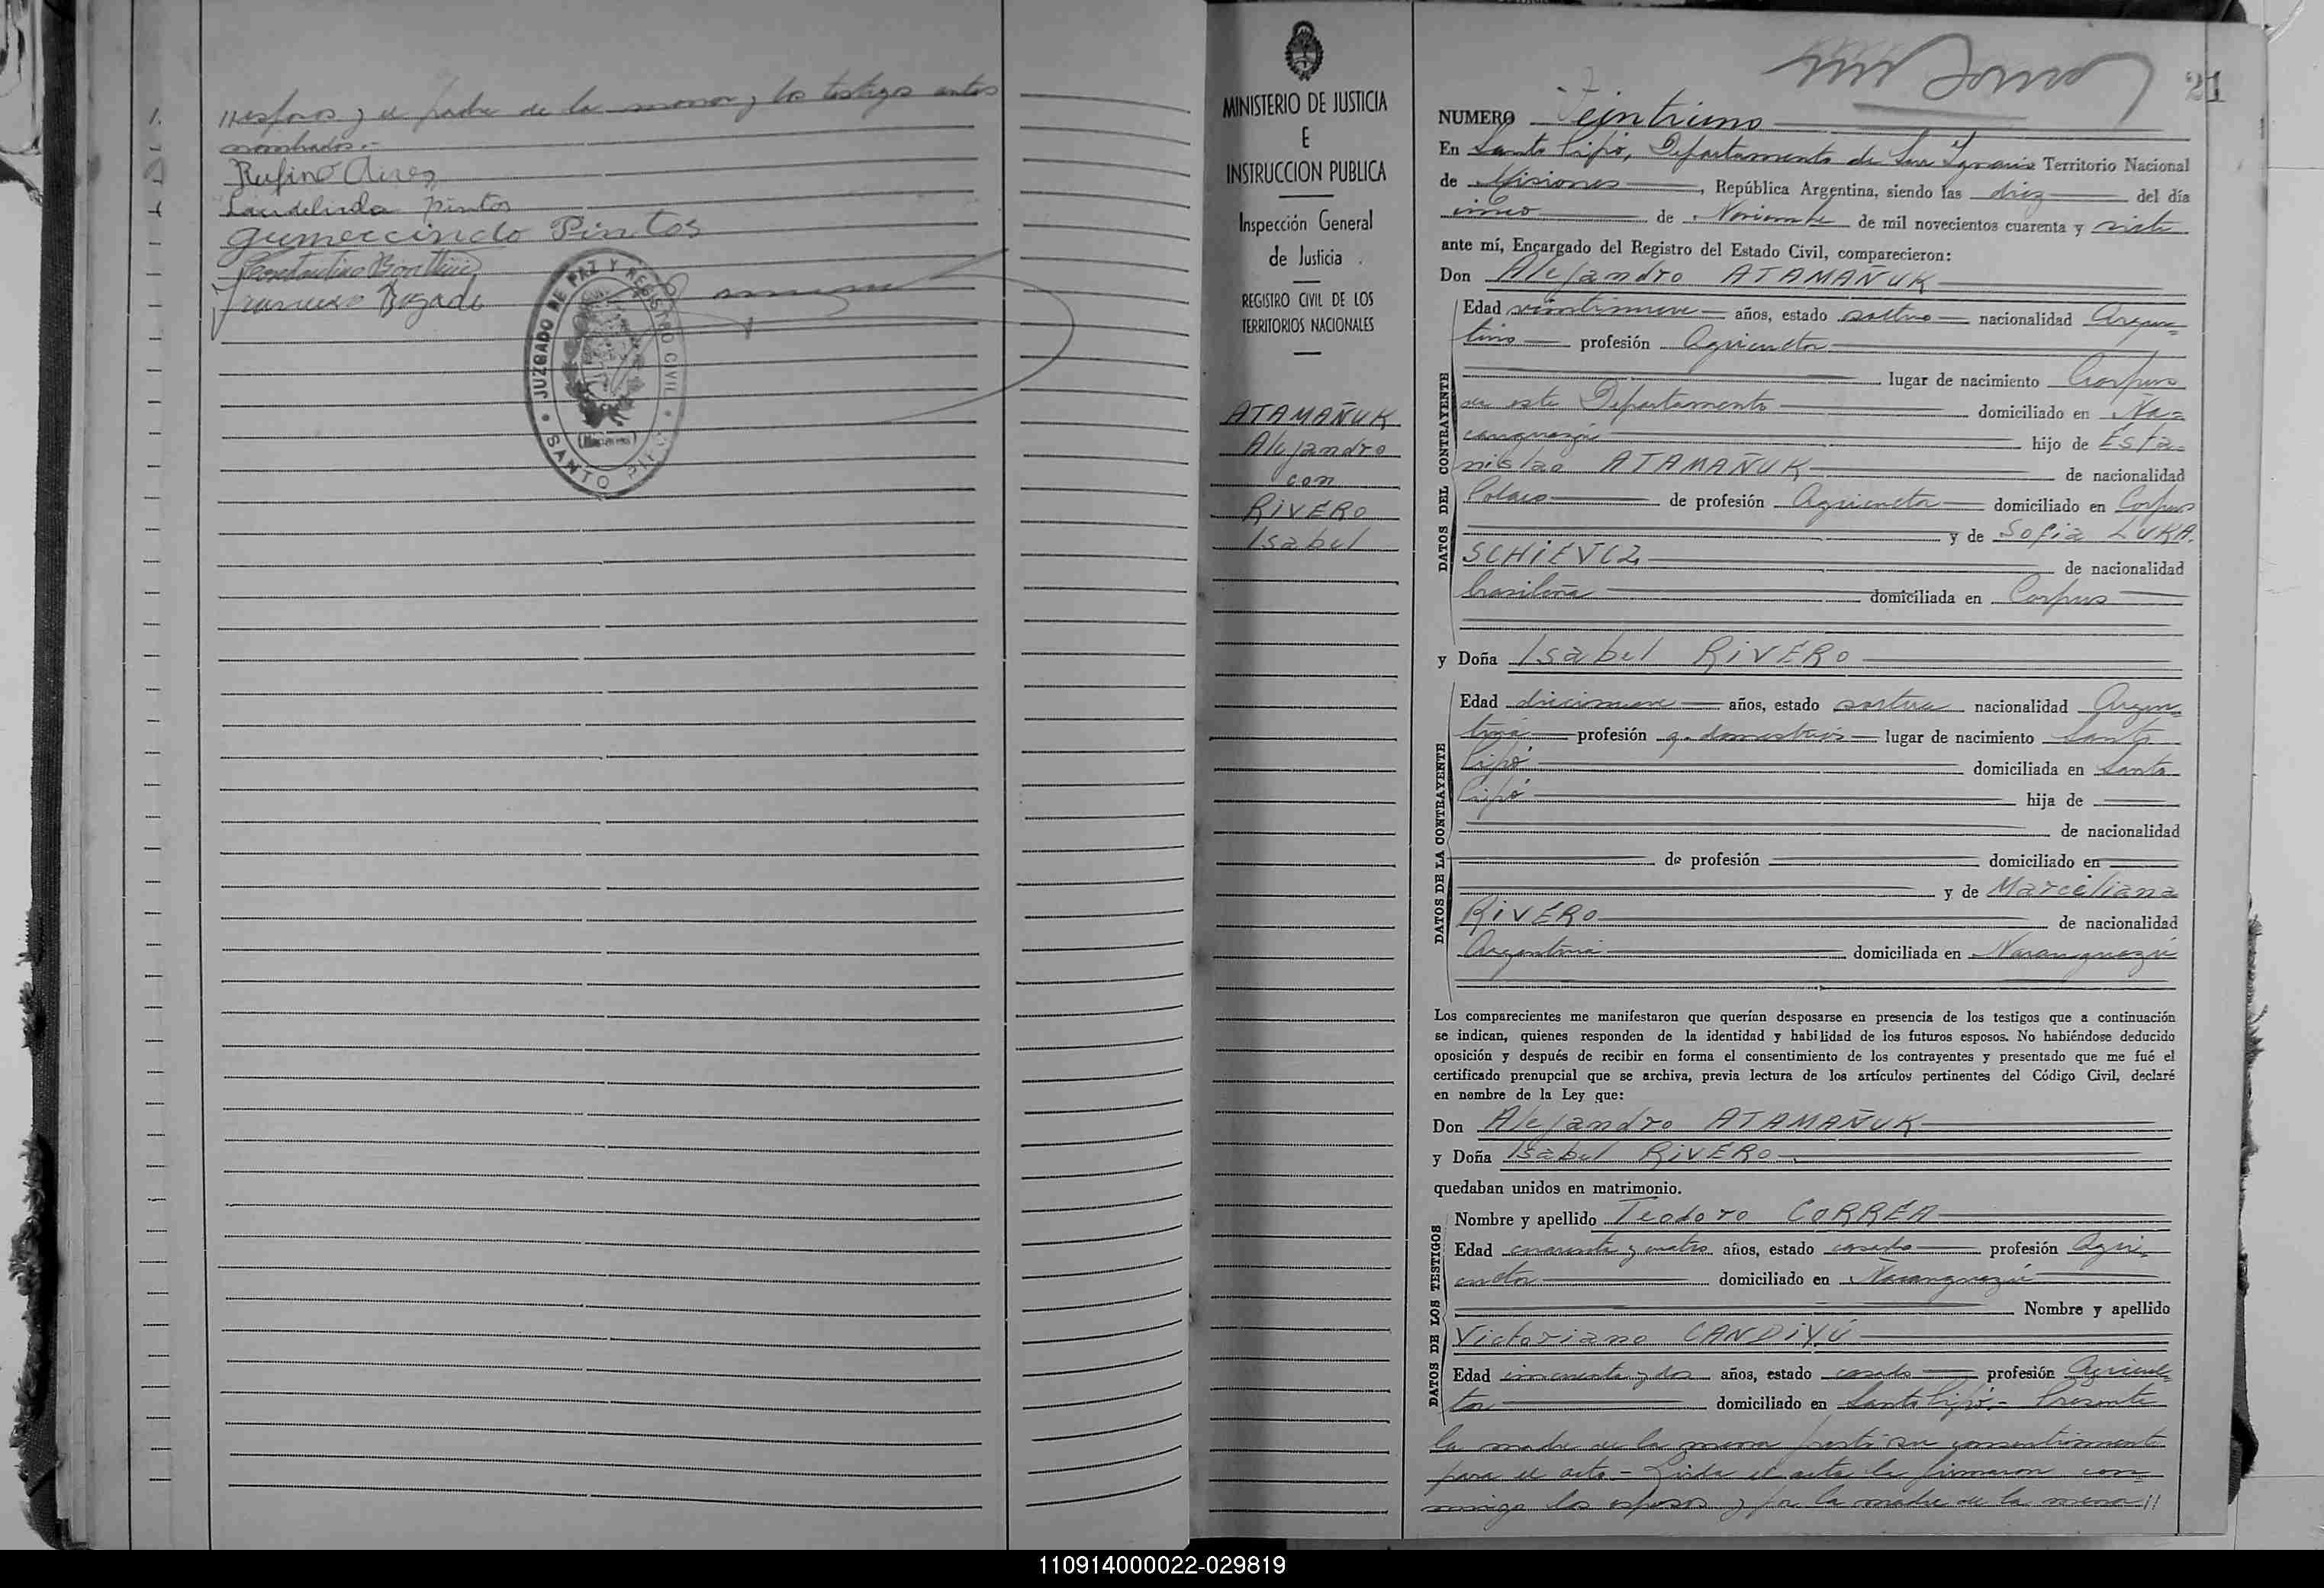 //esposos y el padre de la menor y los testigos antes
nombrados.-
Rufino Aires
Laudelinda Pintos
Gumercindo Pintos
Francisco Bogado
JUZGADO DE PAZ Y REGISTRO CIVIL
SANTO PIPO
(Misiones)
MINISTERIO DE JUSTICIA
E
INSTRUCCION PUBLICA
Inspección General
de Justicia
REGISTRO CIVIL DE LOS
TERRITORIOS NACIONALES
ATAMAÑUK
Alejandro
con
RIVERO
Isabel
21
NUMERO Veintiuno
En Santo Pipó, Departamento de San Ignacio Territorio Nacional
de Misiones, República Argentina, siendo las diez del día
cinco de Noviembre de mil novecientos cuarenta y siete
ante mí, Encargado del Registro del Estado Civil, comparecieron:
Don Alejandro ATAMAÑUK
DATOS DEL CONTRAYENTE
Edad veintinueve años, estado soltero nacionalidad Argen=
tino profesión Agricultor
lugar de nacimiento Corpus
en este Departamento domiciliado en Ña=
canguazú hijo de Esta=
nislao ATAMAÑUK de nacionalidad
Polaco de profesión Agricultor domiciliado en Corpus
y de Sofia LUKA.
SCHIEVCZ de nacionalidad
brasileña domiciliada en Corpus
y Doña Isabel RIVERO
DATOS DE LA CONTRAYENTE
Edad diecinueve años, estado soltera nacionalidad Argen=
tina profesión q. domésticos lugar de nacimiento Santo
Pipó domiciliada en Santo
Pipó hija de
de nacionalidad
de profesión domiciliado en
y de Marceliana
RIVERO de nacionalidad
Argentina domiciliada en Ñacanguazú
Los comparecientes me manifestaron que querían desposarse en presencia de los testigos que a continuación
se indican, quienes responden de la identidad y habilidad de los futuros esposos. No habiéndose deducido
oposición y después de recibir en forma el consentimiento de los contrayentes y presentado que me fué el
certificado prenupcial que se archiva, previa lectura de los artículos pertinentes del Código Civil, declaré
en nombre de la Ley que:
Don Alejandro ATAMAÑUK
y Doña Isabel RIVERO
quedaban unidos en matrimonio.
DATOS DE LOS TESTIGOS
Nombre y apellido Teodoro CORREA
Edad cuarenta y cuatro años, estado casado profesión Agri=
cultor domiciliado en Ñacanguazú
Nombre y apellido
Victoriano CANDIYÚ
Edad cincuenta y dos años, estado casado profesión Agricul=
tor domiciliado en Santo Pipó.- Presente
la madre de la menor prestó su consentimiento
para el acto.- Leída el acta la firmaron con=
migo los esposos y por la madre de la menor//
110914000022-029819